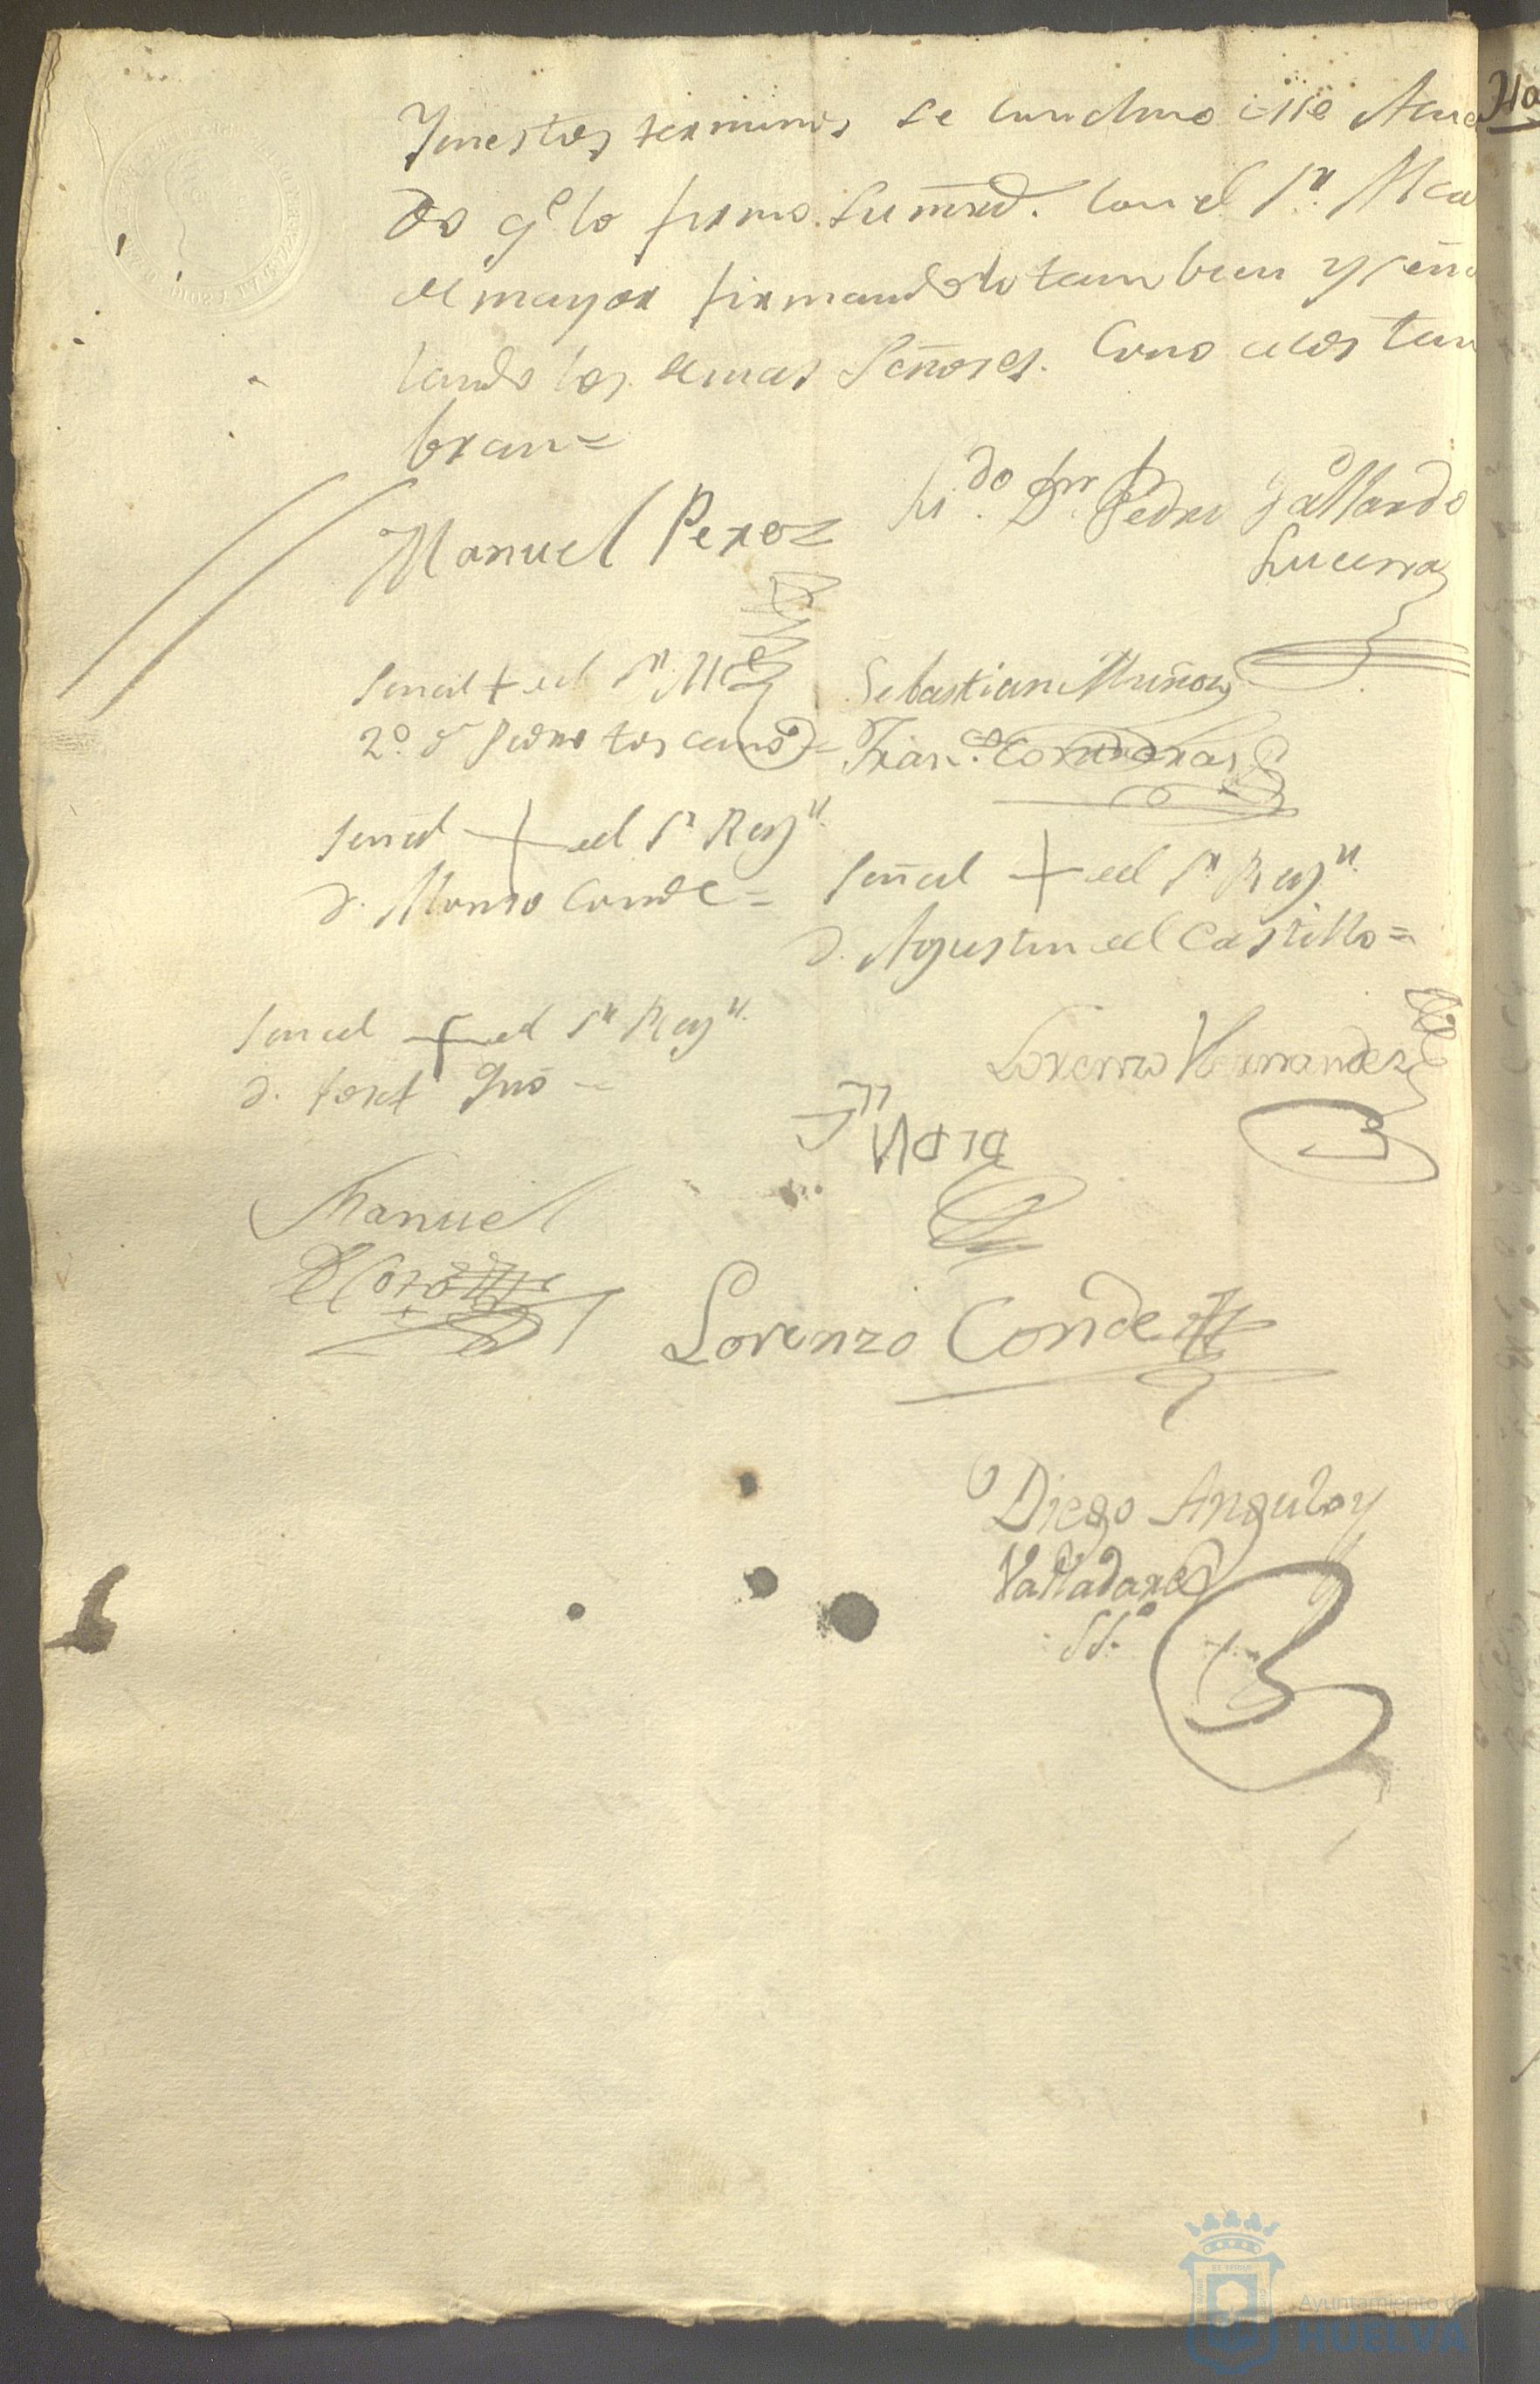 Yenestos terminos se concluio este Acue
do qe. lo firmo su mrd. con el Sr. Alca
de mayor firmandolo tambien y señ
lando los demas Señores. Como acostum
bran =
Manuel Perez
Lido. Dn. Pedro Gallardo
Lucena
Señal + del Sr. Alce
2º. D Pedro toscano =
Sebastian Muñoz
Franco. Contreras
Señal + del Sr Regr.
D. Alonso Conde =
Señal + del Sr Regr.
D. Agustin del Castillo =
Señal + del Sr Regr.
D. Josef
Lorenzo Hernandez
Manuel
Lorenzo Conde
Diego Angulo y
Valladares
SS.º
Ayuntamiento de
HUELVA